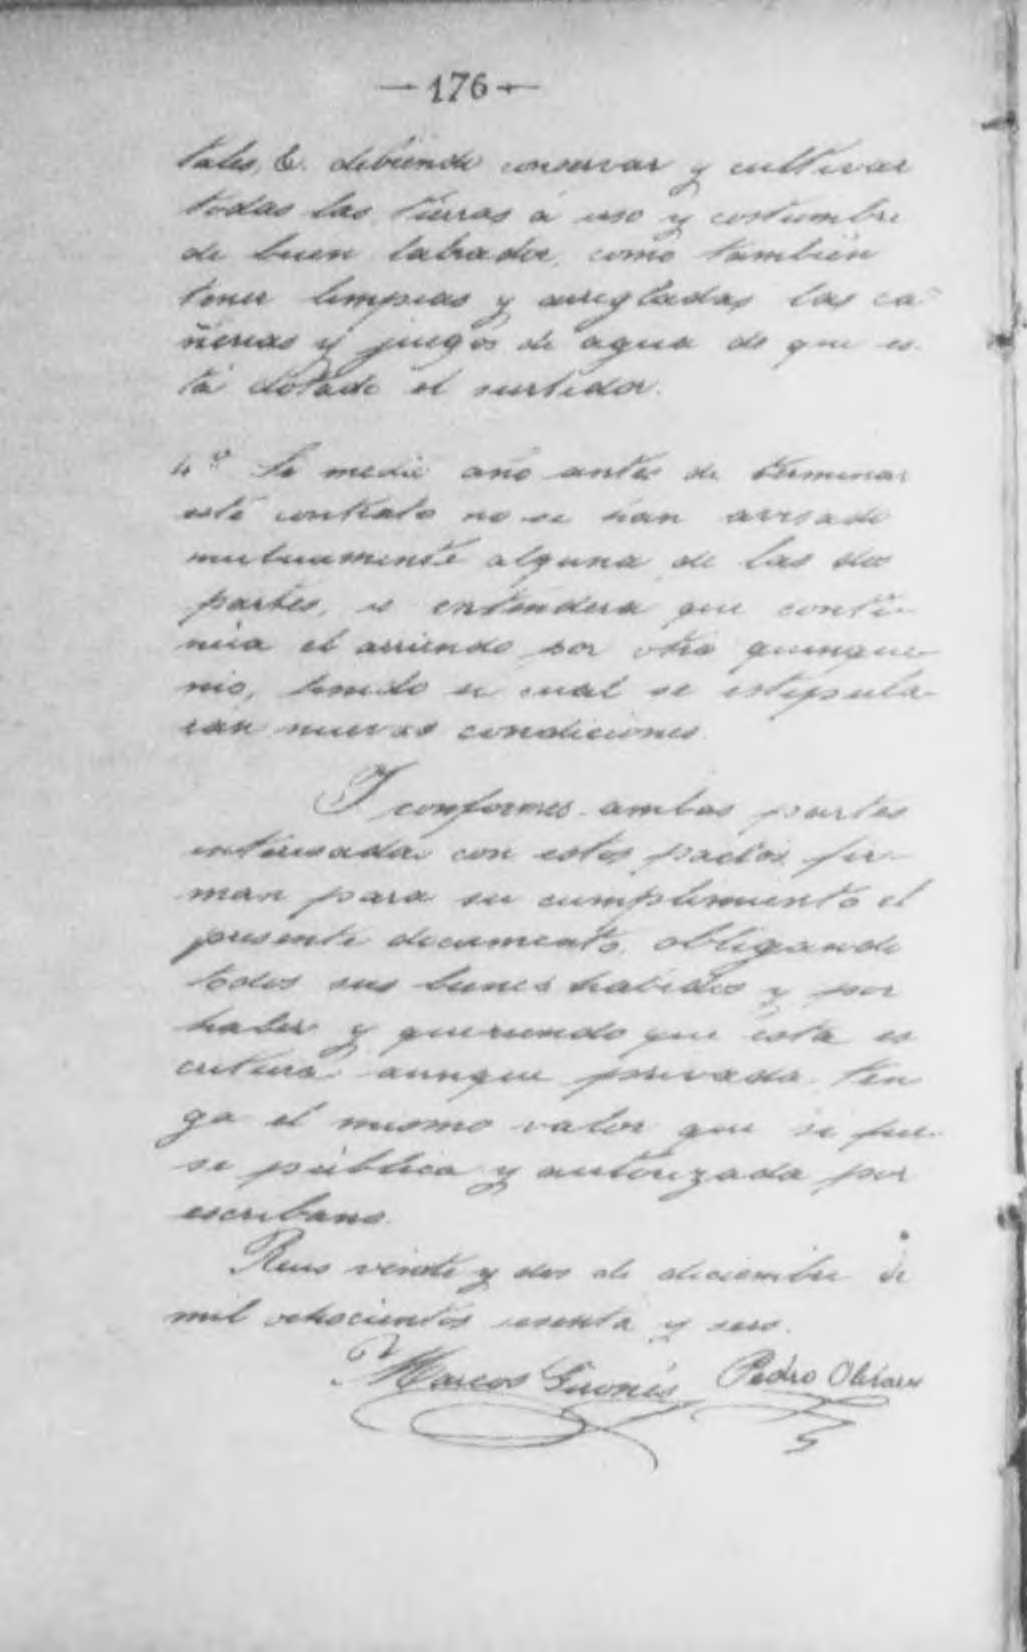 — 176 —
tales, &. debiendo conservar y cultivar
todas las tierras á uso y costumbre
de buen labrador, como tambien
tener limpias y arregladas las ca
ñerias y juegos de agua de que es-
tá dotado el surtidor.
4º Si medio año antes de terminar
este contrato no se han avisado
mutuamente alguna de las dos
partes, se entenderá que conti-
núa el arriendo por otro quinque-
nio, fenido el cual se estipula-
ran nuevas condiciones.
Y conformes ambas partes
interesadas con estos pactos, fir-
man para su cumplimiento el
presente documento, obligando
todos sus bienes habidos y por
haber y queriendo que esta es
critura aunque privada ten
ga el mismo valor que si fue-
se pública y autorizada por
escribano.
Reus veinte y dos de diciembre de
mil ochocientos sesenta y seis.
Marcos Gironés Pedro